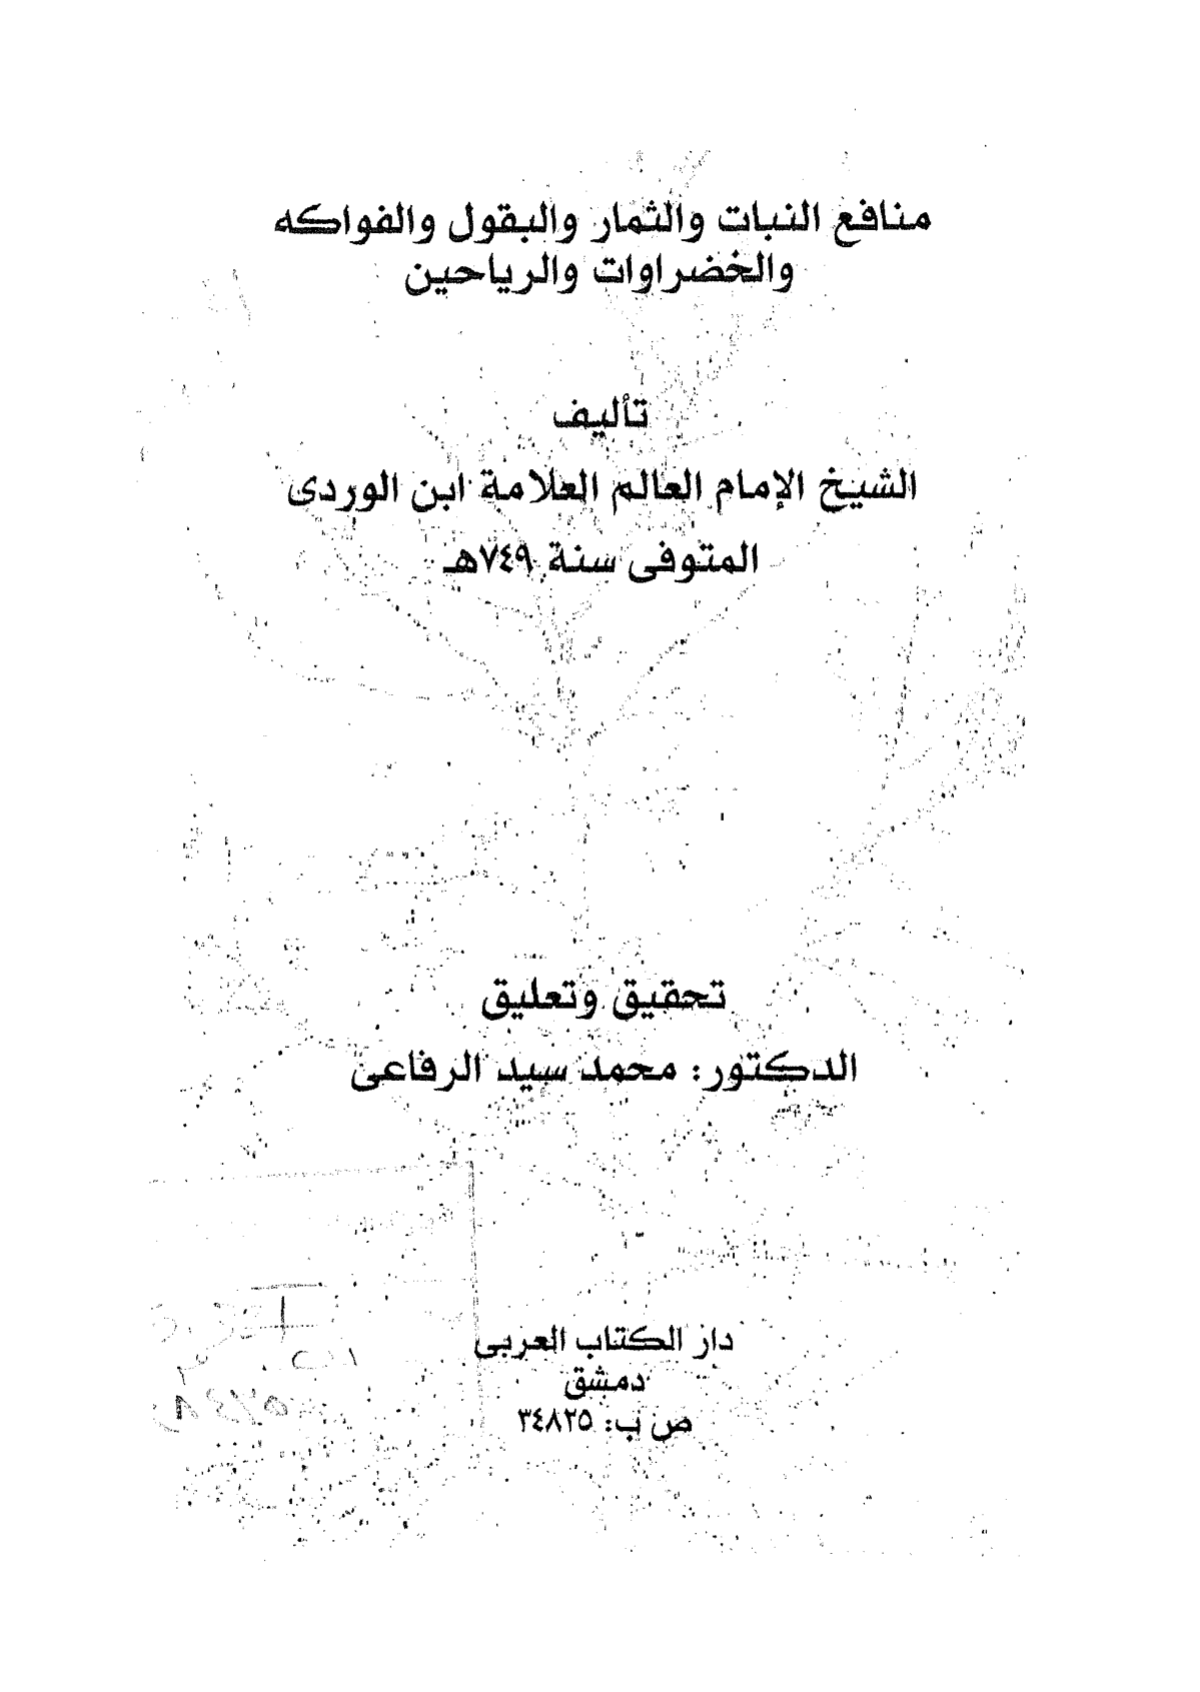 منافع النبات والثمار والبقول والفواكه
والخضراوات والرياحين
تأليف
الشيخ الإمام العالم العلامة ابن الوردى
المتوفى سنة ٧٤٩هـ
تحقيق وتعليق
الدكتور: محمد سيد الرفاعى
دار الكتاب العربى
دمشق
ص ب: ٣٤٨٢٥